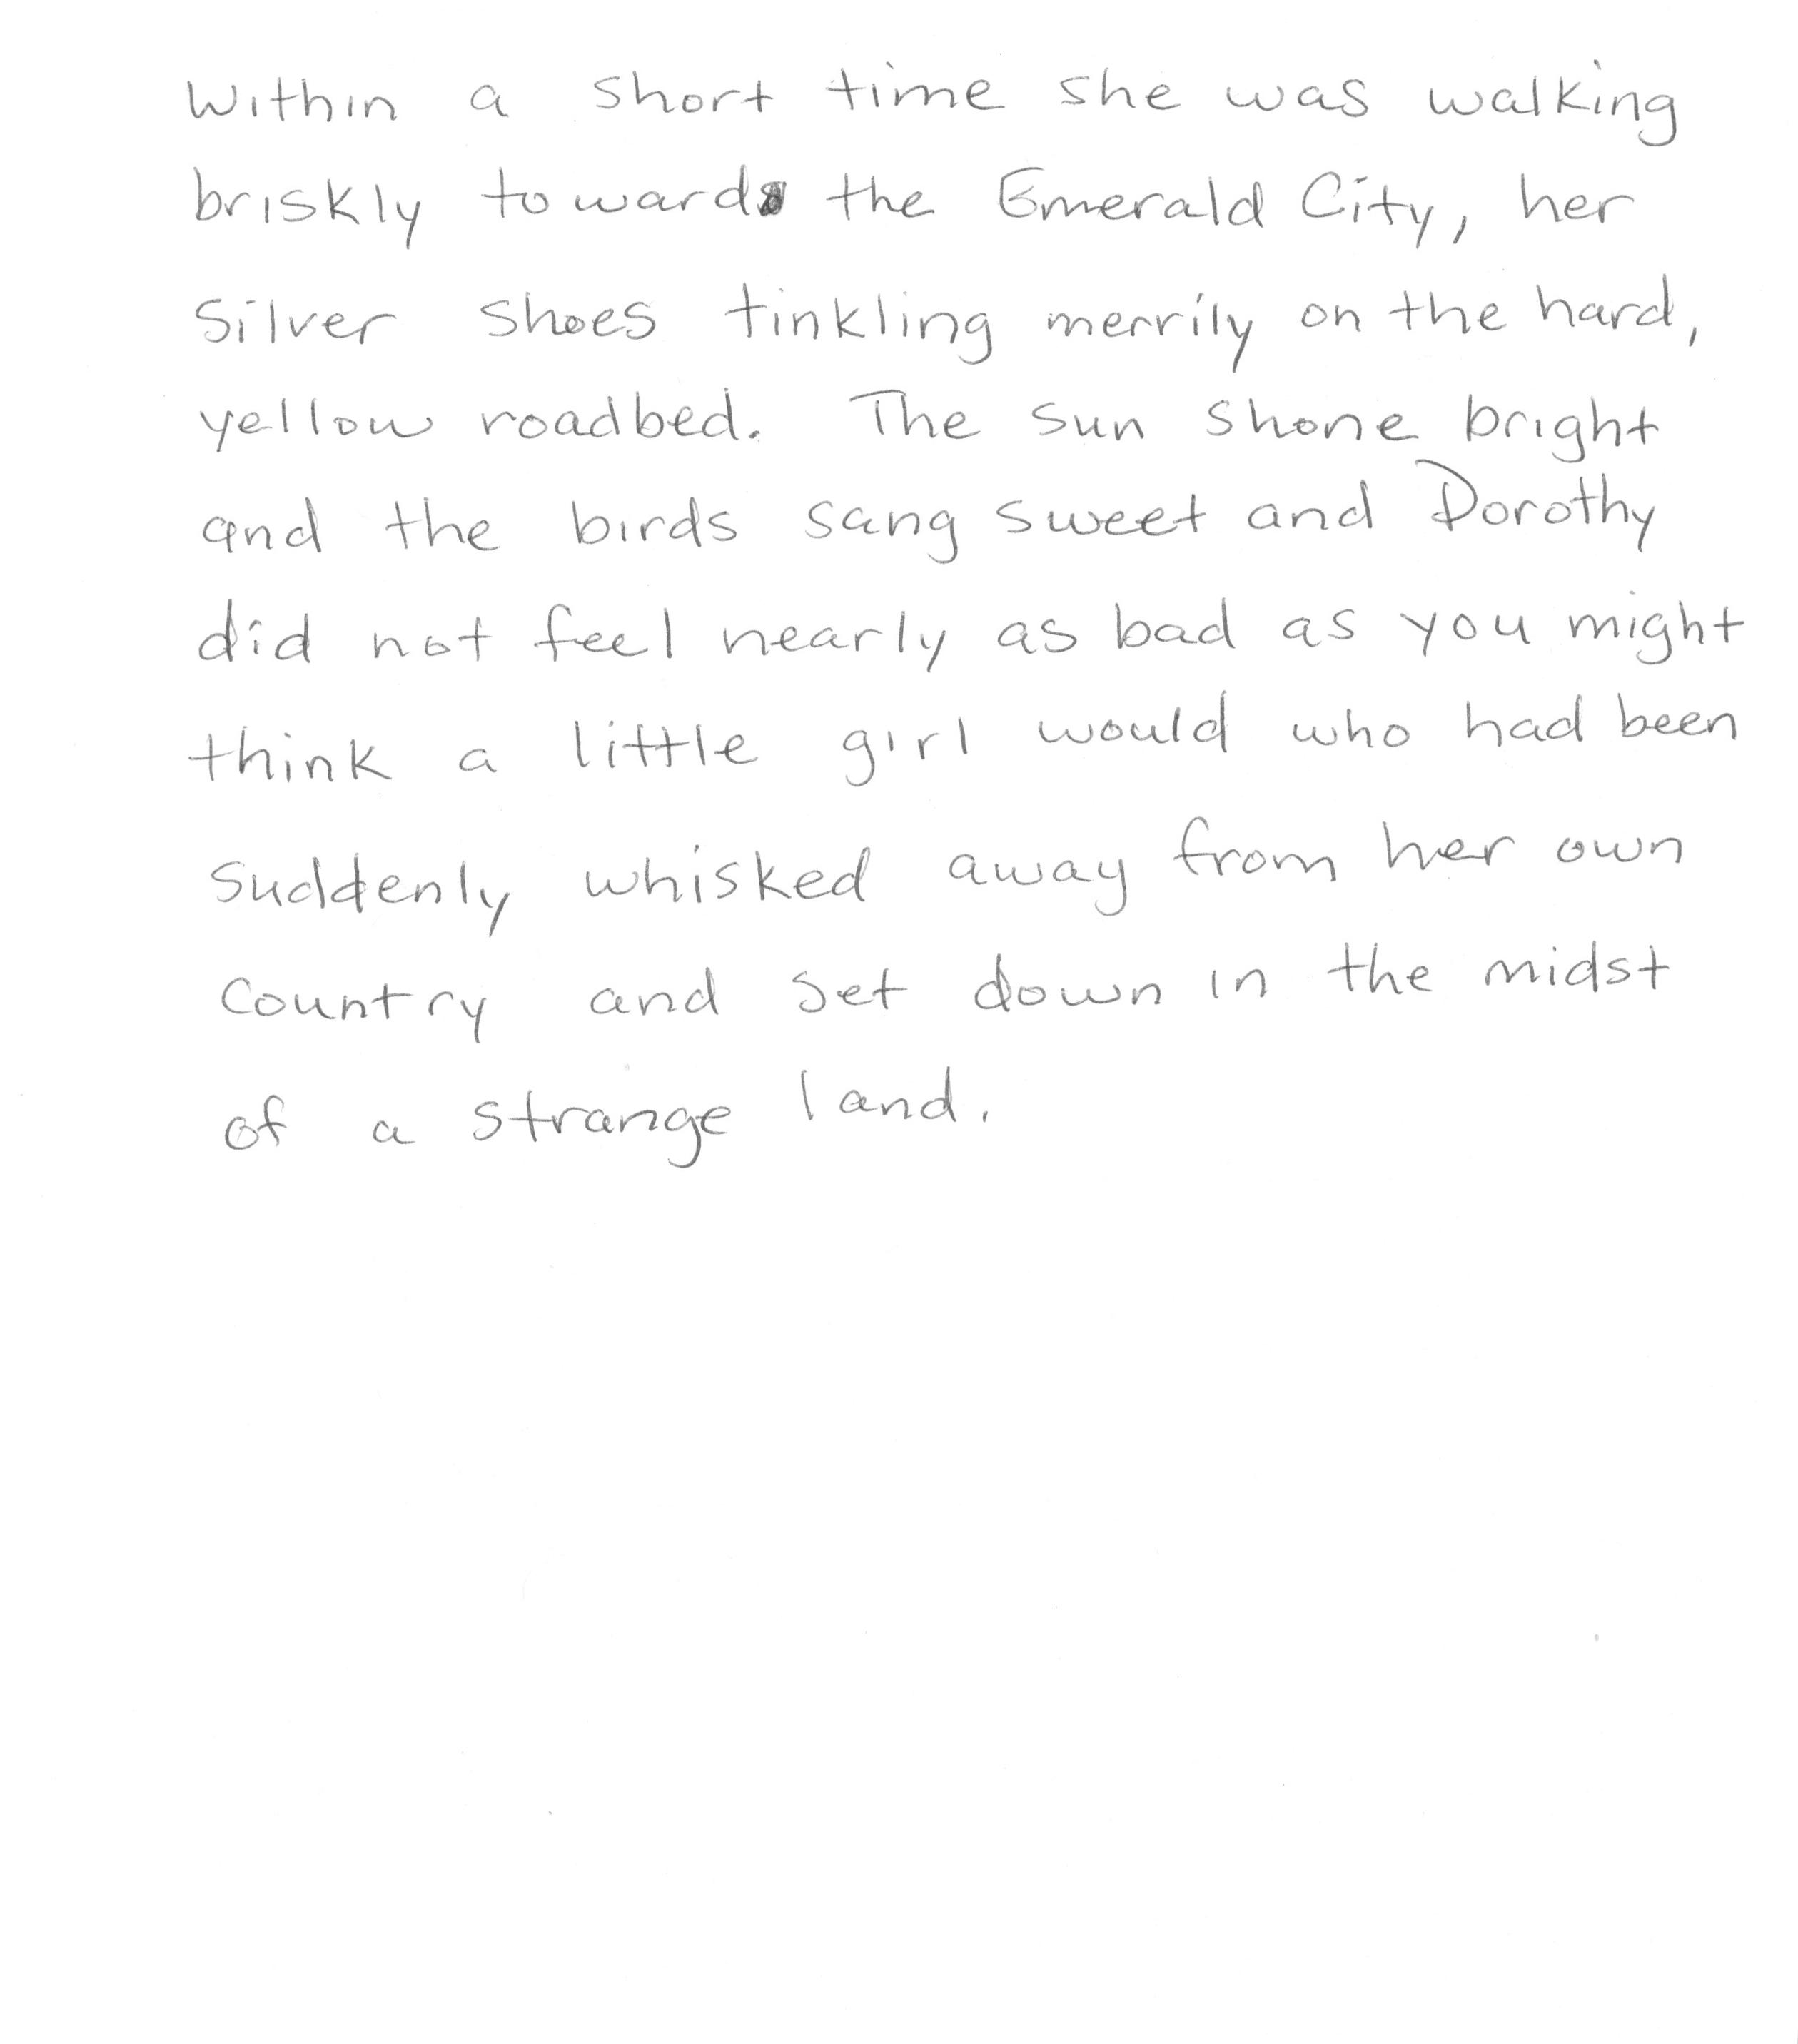 Within a short time she was walking
briskly toward the Emerald City, her
Silver Shoes tinkling merrily on the hard,
yellow roadbed. The sun shone bright
and the birds sang sweet and Dorothy
did not feel nearly as bad as you might
think a little girl would who had been
suddenly whisked away from her own
country and set down in the midst
of a strange land.